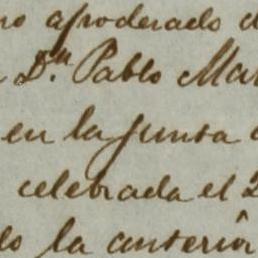 mo apoderado d
Dn. Pablo Mar
en la Junta
celebrada el 2
do la anterior